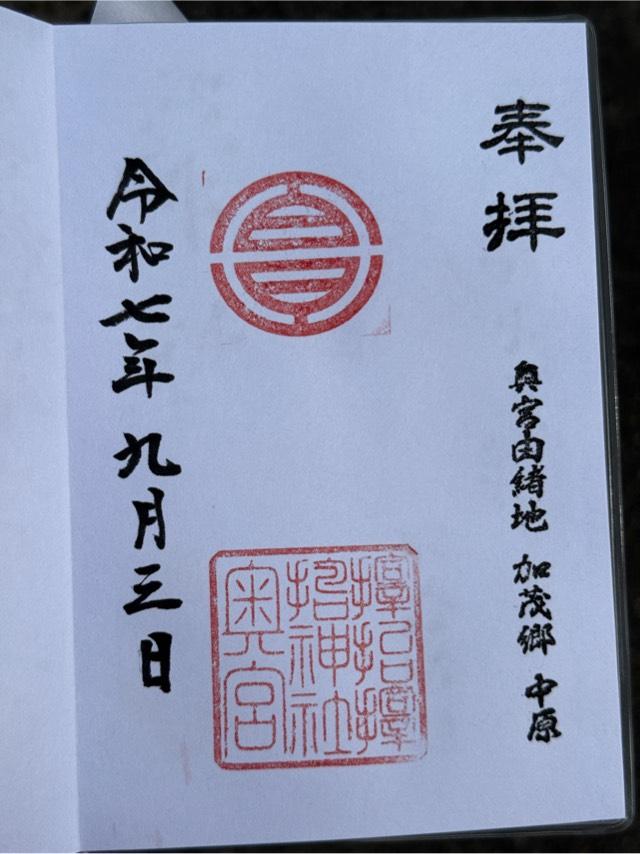 奉拝
奥宮由緒地 加茂郷 中原
招神社
奥宮
令和七年 九月三日